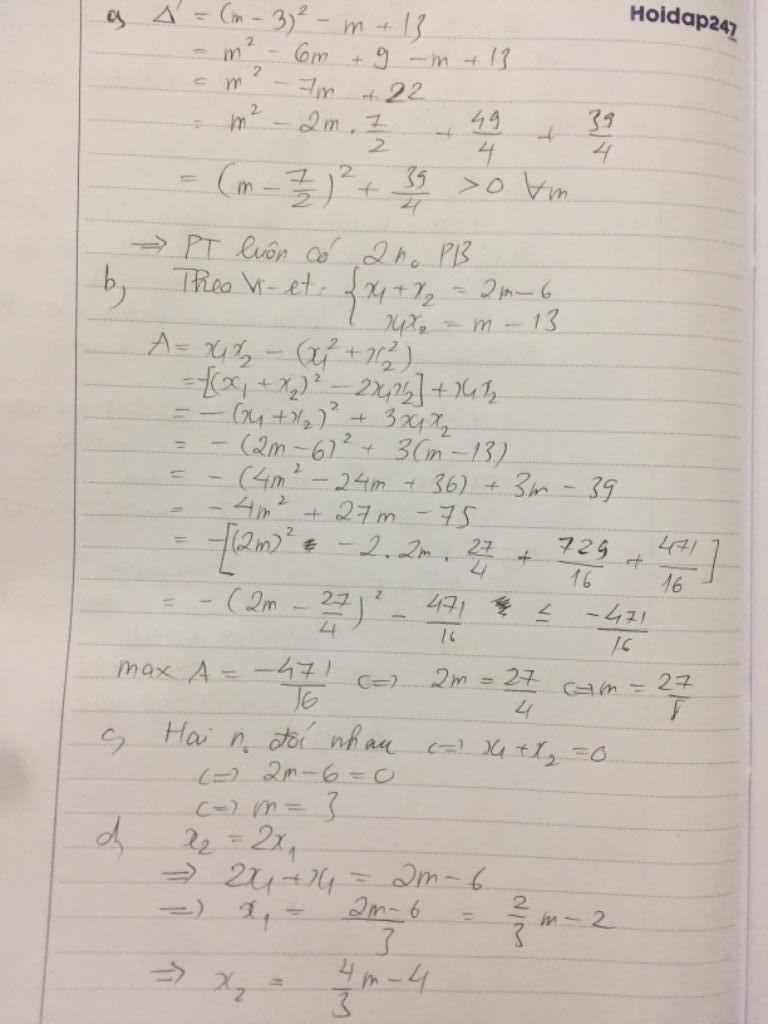 Hoidap247
a) Δ' = (m - 3)² - m + 13
= m² - 6m + 9 - m + 13
= m² - 7m + 22
= m² - 2m . 7/2 + 49/4 + 39/4
= (m - 7/2)² + 39/4 > 0 ∀m
=> PT luôn có 2 n₀ PB
b) Theo Vi-et: { x₁ + x₂ = 2m - 6
x₁x₂ = m - 13
A = x₁x₂ - (x₁² + x₂²)
= -[(x₁ + x₂)² - 2x₁x₂] + x₁x₂
= -(x₁ + x₂)² + 3x₁x₂
= -(2m - 6)² + 3(m - 13)
= -(4m² - 24m + 36) + 3m - 39
= -4m² + 27m - 75
= -[(2m)² - 2 . 2m . 27/4 + 729/16 + 471/16]
= -(2m - 27/4)² - 471/16 ≤ -471/16
max A = -471/16 <=> 2m = 27/4 <=> m = 27/8
c) Hai n₀ đối nhau <=> x₁ + x₂ = 0
<=> 2m - 6 = 0
<=> m = 3
d) x₂ = 2x₁
=> 2x₁ + x₁ = 2m - 6
=> x₁ = 2m-6/3 = 2/3 m - 2
=> x₂ = 4/3 m - 4